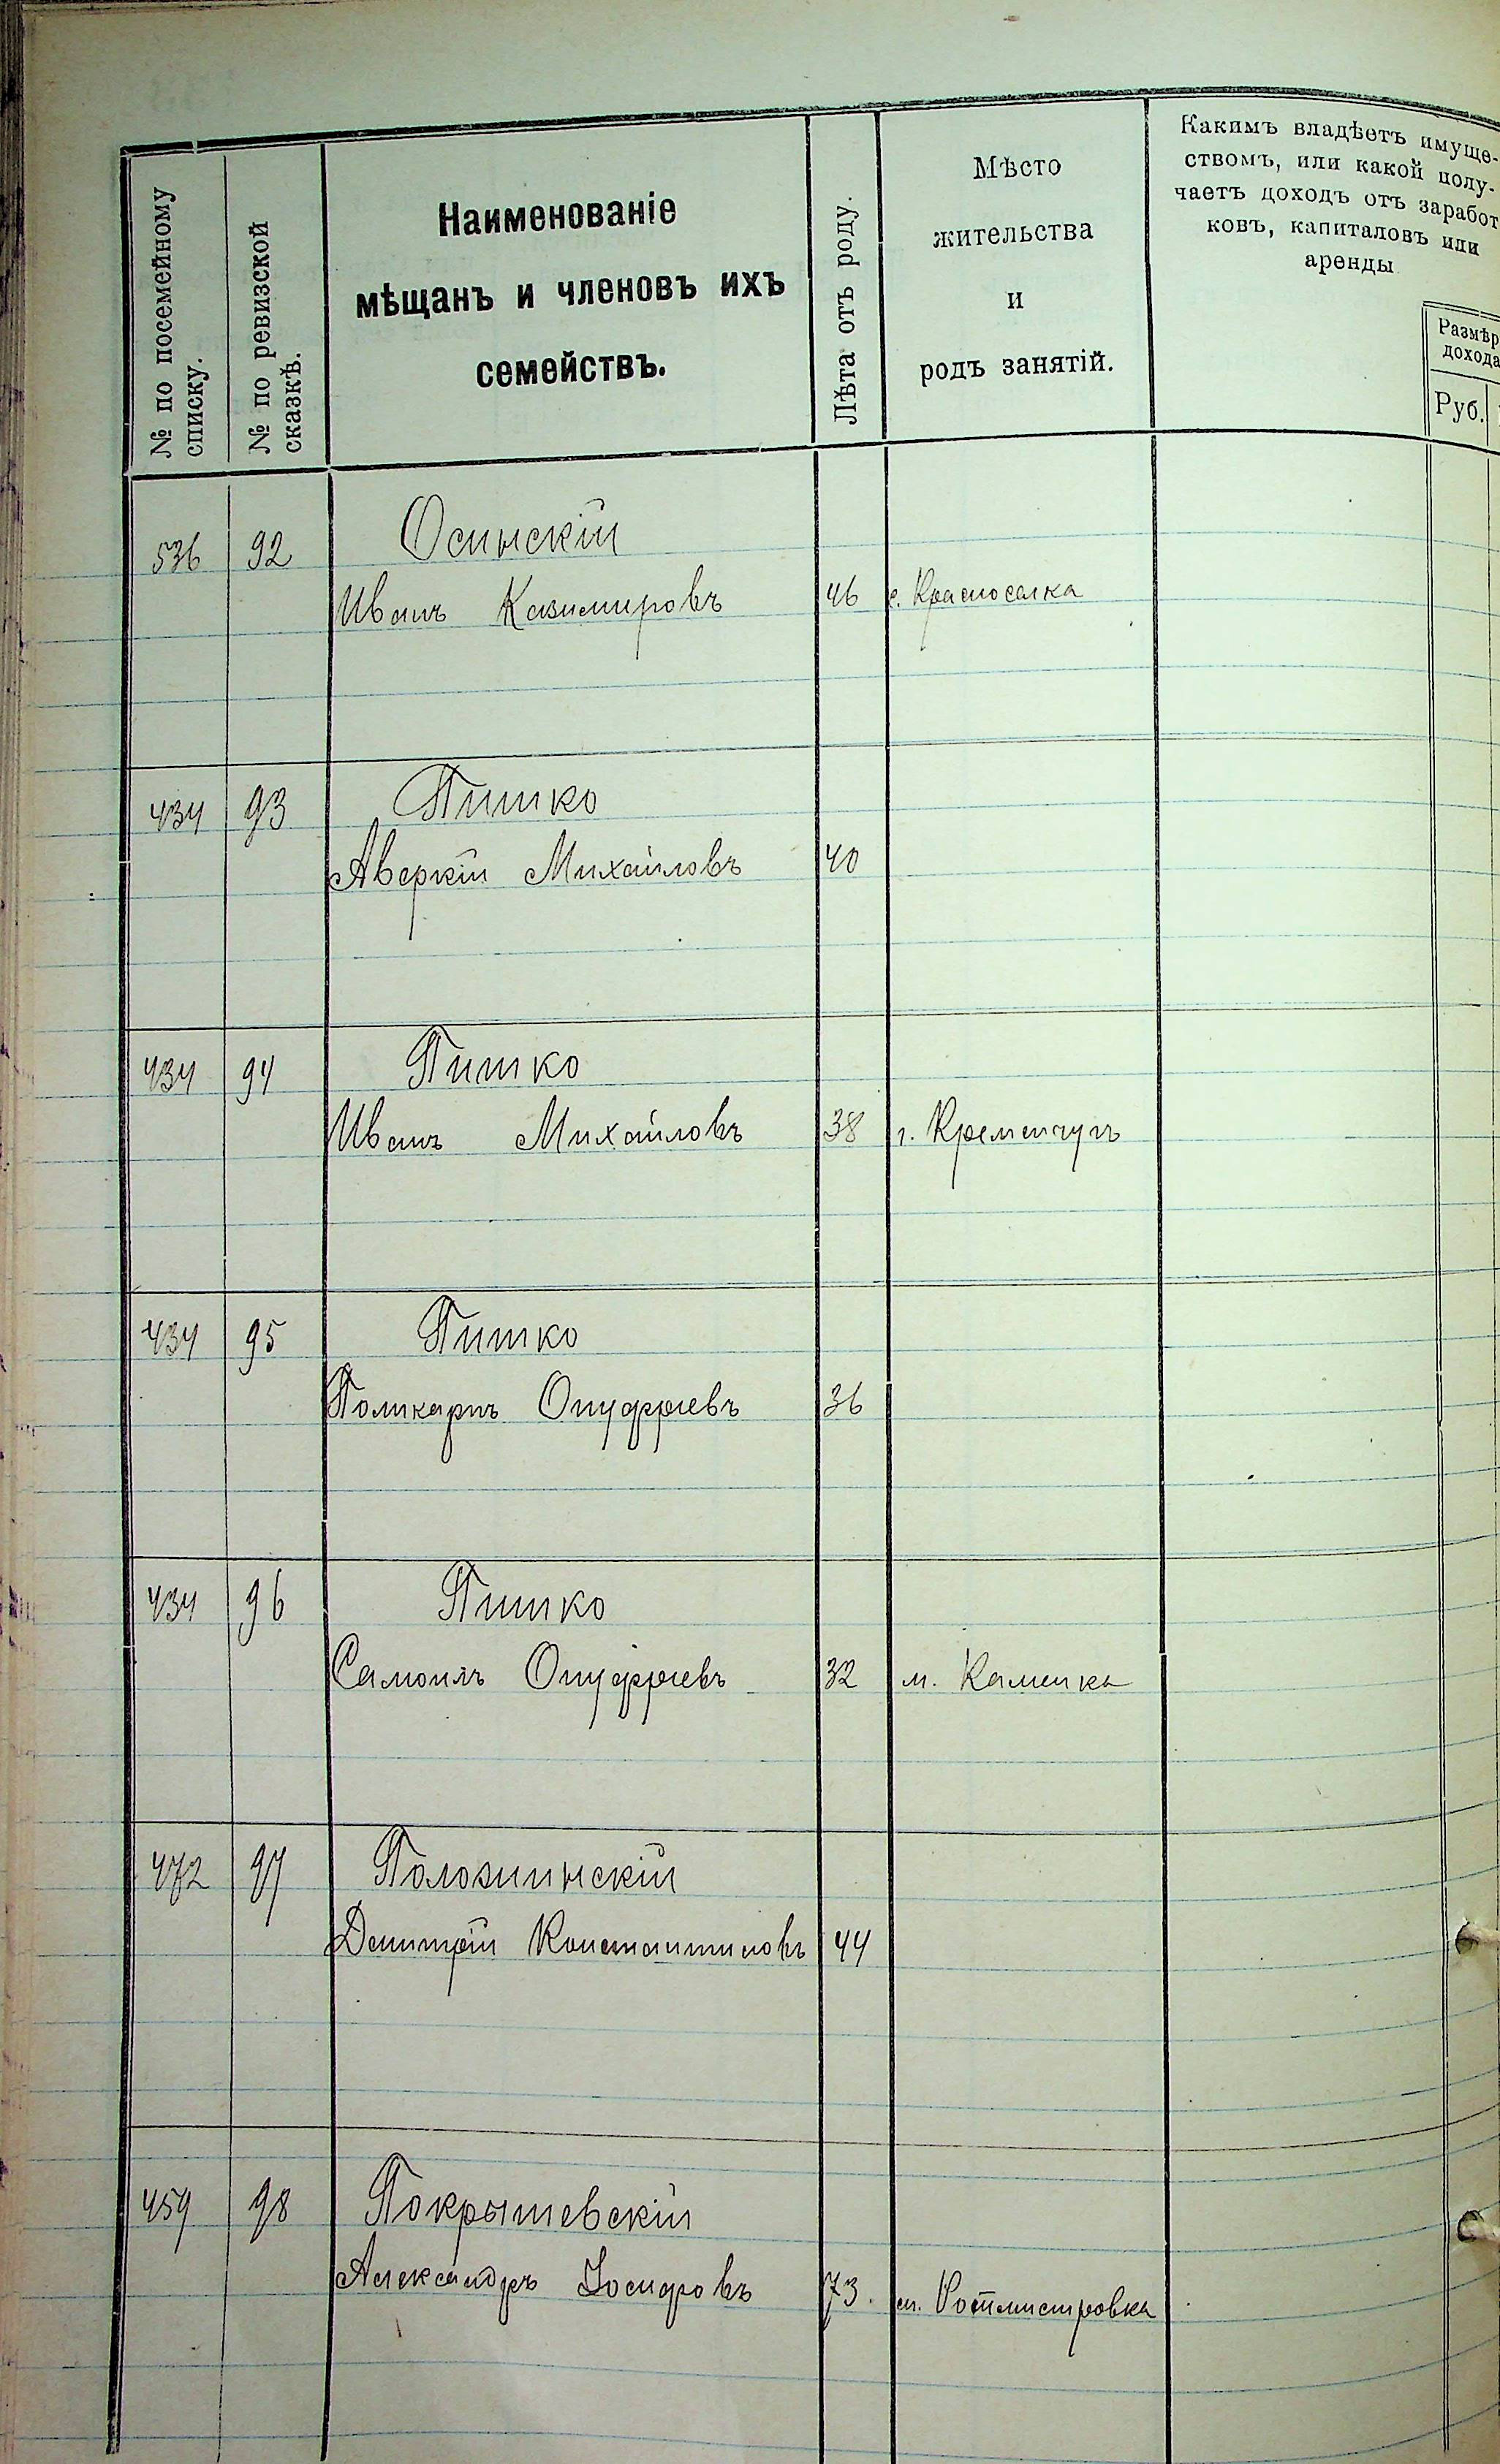 № по посемейному
списку.
№ по ревизской
сказкѣ.
Наименованіе
мѣщанъ и членовъ ихъ
семействъ.
Лѣта отъ роду.
Мѣсто
жительства
и
родъ занятій.
Какимъ владѣетъ имуще-
ствомъ, или какой полу-
чаетъ доходъ отъ заработ
ковъ, капиталовъ или
аренды.
Размѣр
дохода
Руб.
536 92 Осинскій
Иванъ Казимировъ 46 с. Красноселка
434 93 Пишко
Аверкій Михайловъ 40
434 94 Пишко
Иванъ Михайловъ 38 г. Кременчугъ
434 95 Пишко
Поликарпъ Онуфріевъ 36
434 96 Пишко
Самоилъ Онуфріевъ 32 м. Каменка
472 97 Полозинскій
Дмитрій Константиновъ 44
459 98 Покрышевскій
Александръ Іосифовъ 73. м. Ротмистровка